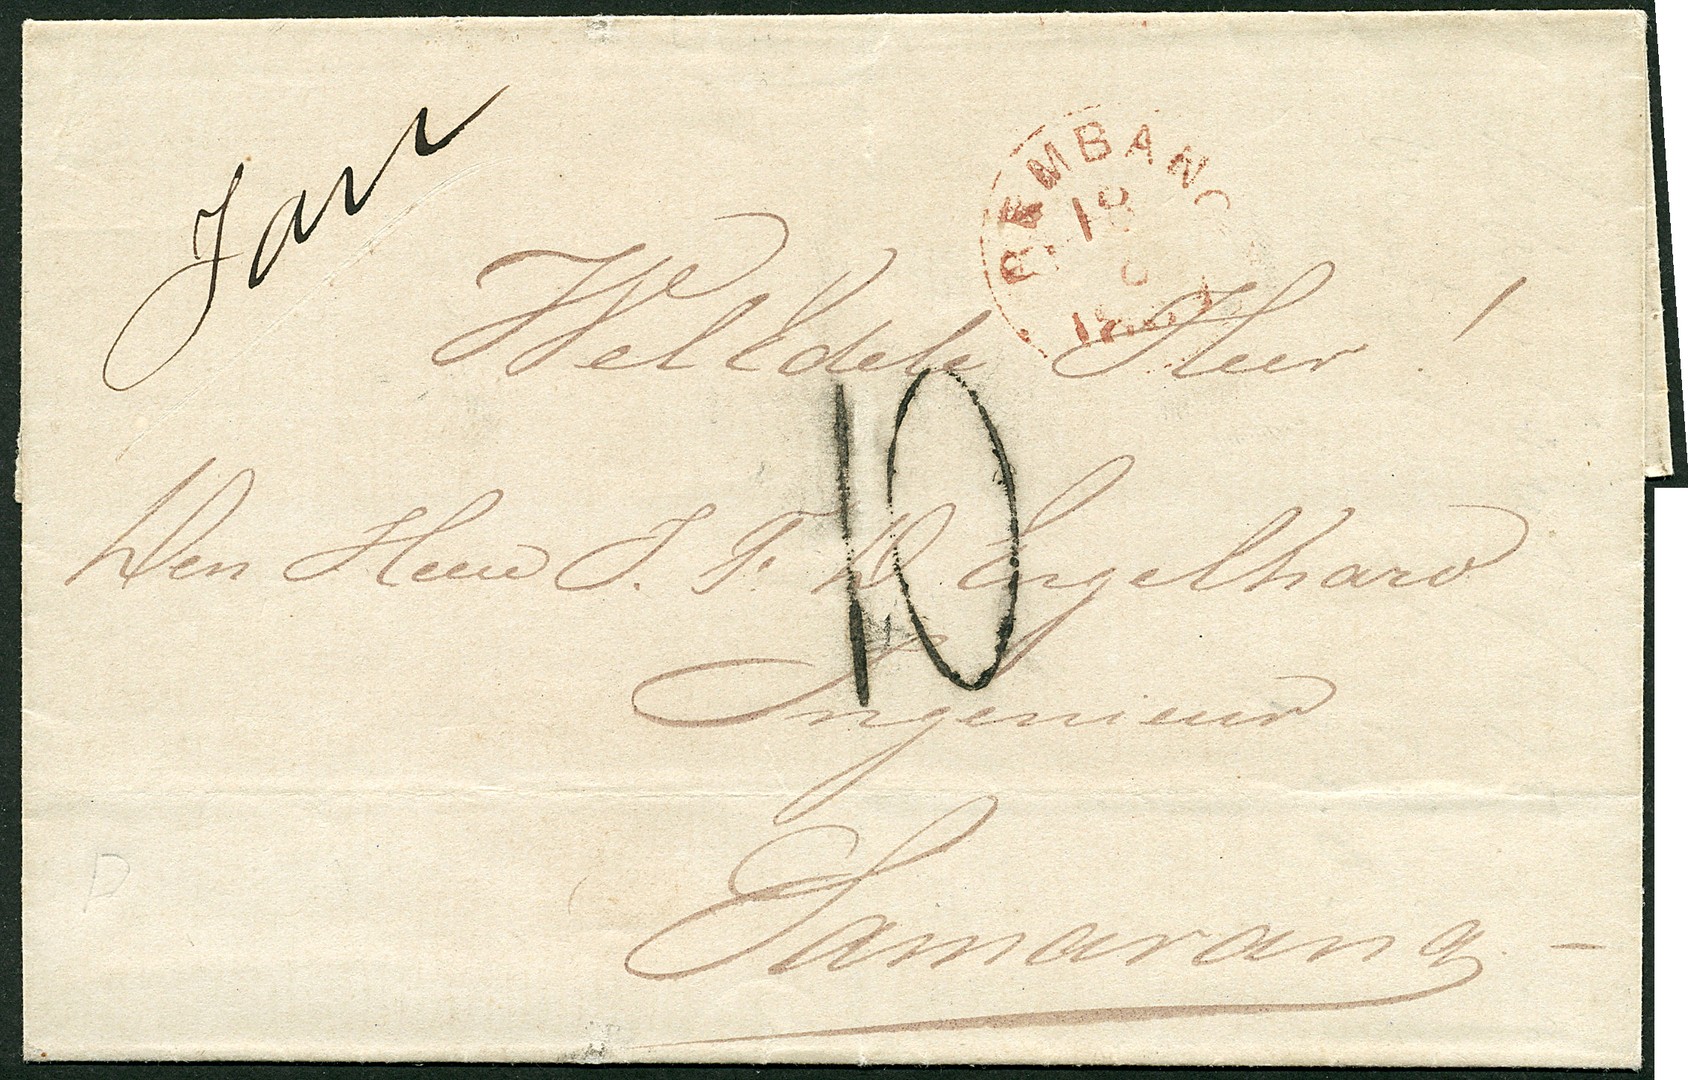 Jan
REMBANG
18
WelEdele Heer !
10
Den Heer J. F. D Engelhard
Ingenieur
Samarang –
D